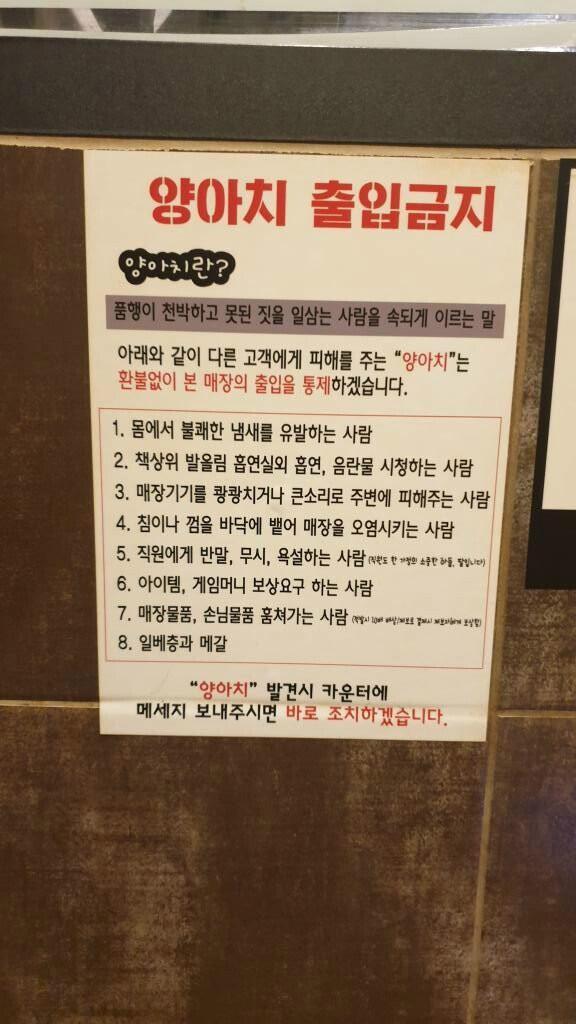 양아치 출입금지
양아치란?
품행이 천박하고 못된 짓을 일삼는 사람을 속되게 이르는 말
아래와 같이 다른 고객에게 피해를 주는 “양아치”는
환불없이 본 매장의 출입을 통제하겠습니다.
1. 몸에서 불쾌한 냄새를 유발하는 사람
2. 책상위 발올림 흡연실외 흡연, 음란물 시청하는 사람
3. 매장기기를 쾅쾅치거나 큰소리로 주변에 피해주는 사람
4. 침이나 껌을 바닥에 뱉어 매장을 오염시키는 사람
5. 직원에게 반말, 무시, 욕설하는 사람 (직원도 한 가정의 소중한 아들, 딸입니다)
6. 아이템, 게임머니 보상요구 하는 사람
7. 매장물품, 손님물품 훔쳐가는 사람 (적발시 10배 배상/제보로 검거시 제보자에게 보상함)
8. 일베충과 메갈
“양아치” 발견시 카운터에
메세지 보내주시면 바로 조치하겠습니다.